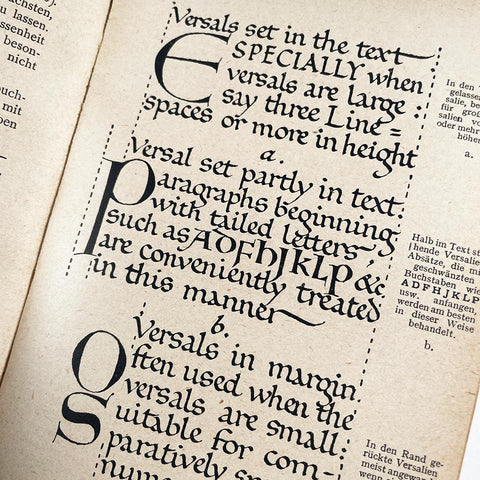 ächsten,
zu lassen.
ssenheit
beson-
nicht
uch-
mit
pen
Versals set in the text
ESPECIALLY when
versals are large :
say three Line=
spaces or more in height
a.
Versal set partly in text:
Paragraphs beginning
with tailed letters,
such as ADFhJKLP &c
are conveniently treated
in this manner
b.
Versals in margin.
Often used when the
versals are small:
Suitable for com-
paratively
In den
gelassen
salie, be
für groß
salien vo
oder mehr
höhe
a.
Halb im Text st
hende Versalien
Absätze, die mi
geschwänzten
Buchstaben wie
ADFHJKLP
usw. anfangen,
werden am besten
in dieser Weise
behandelt.
b.
In den Rand ge-
rückte Versalien
meist angewand
wenn